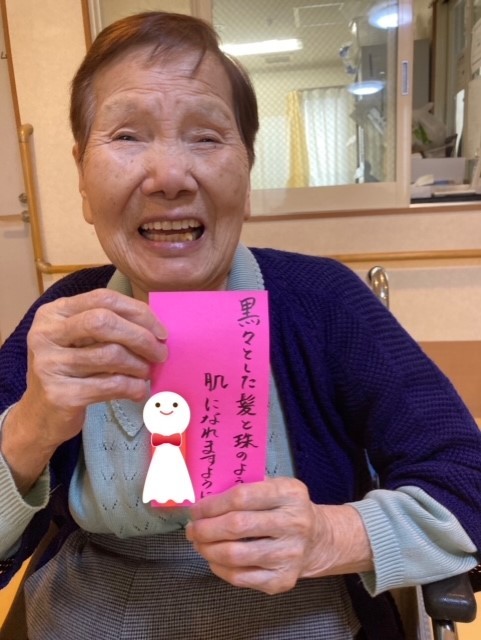 黒々とした髪と珠のよう
肌になれますように